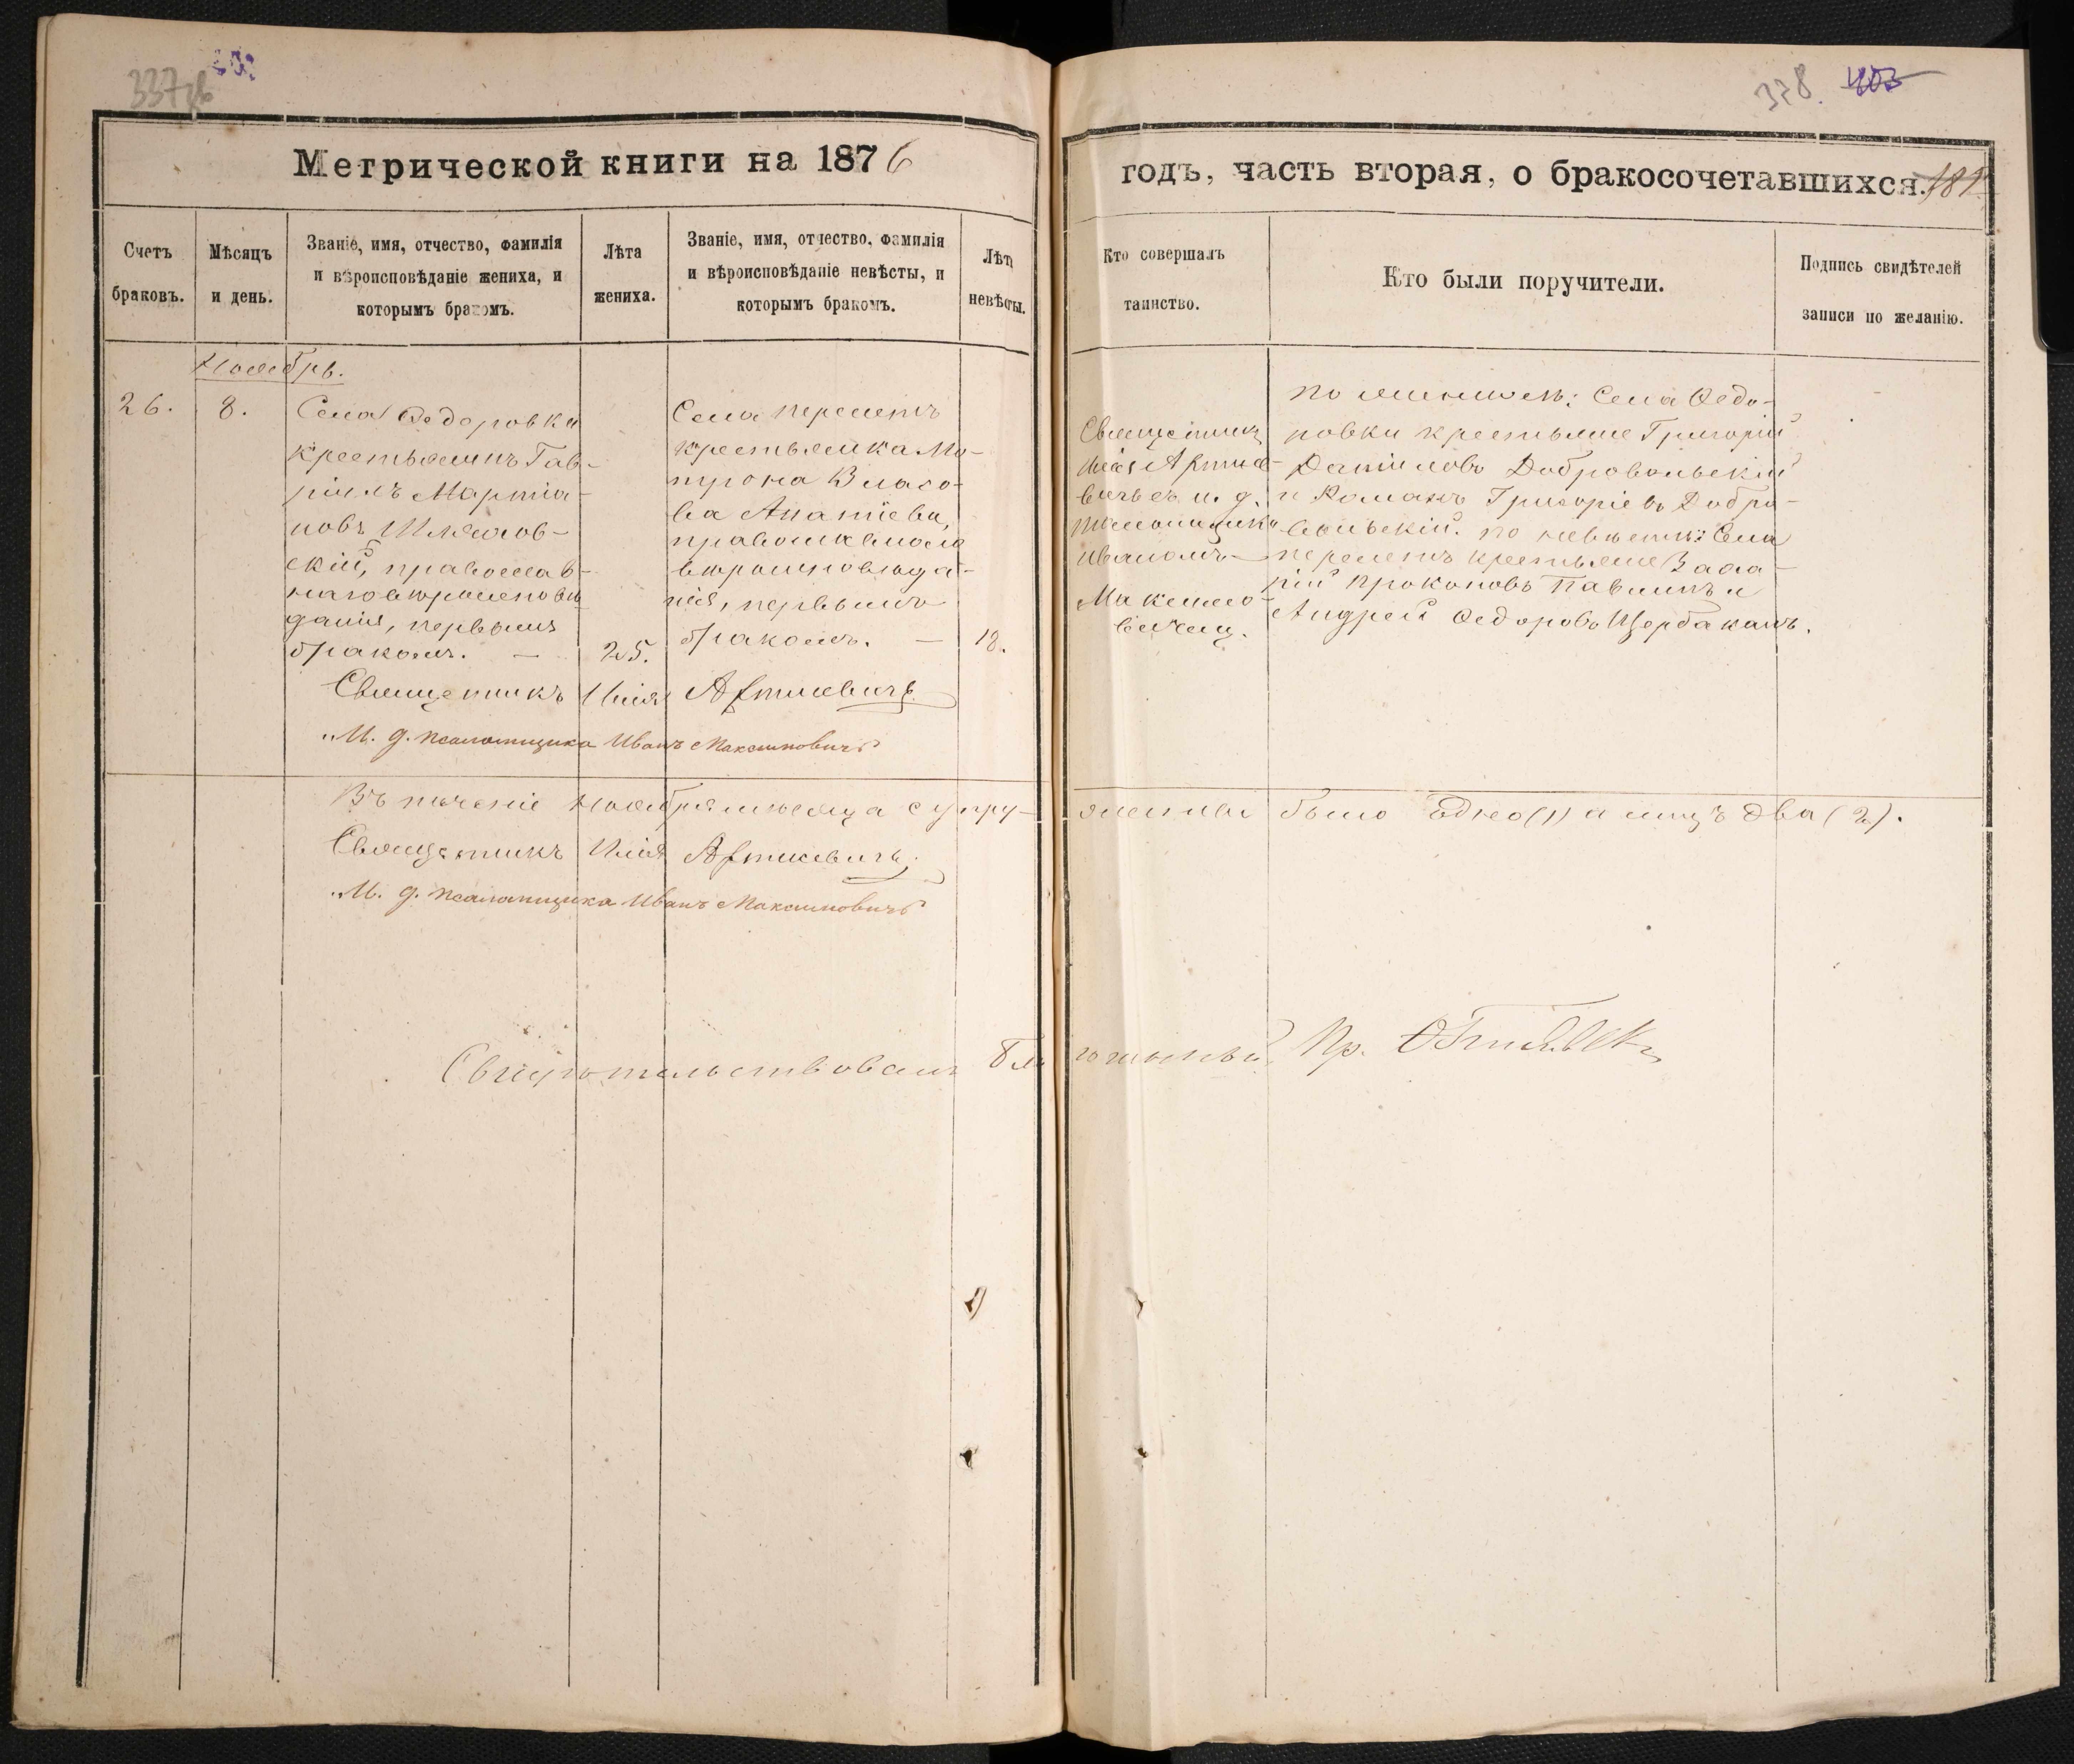 337 об
378. 403
Метрической книги на 1876
годъ, часть вторая, о бракосочетавшихся. 181.
Счетъ браковъ.
Мѣсяцъ и день.
Званіе, имя, отчество, фамилія
и вѣроисповѣданіе жениха, и
которымъ бракомъ.
Лѣта жениха.
Званіе, имя, отчество, фамилія
и вѣроисповѣданіе невѣсты, и
которымъ бракомъ.
Лѣта невѣсты.
Кто совершалъ
таинство.
Кто были поручители.
Подпись свидѣтелей
записи по желанію.
Ноябрь.
26.
8.
Села Ѳедоровки
крестьянинъ Гав-
ріилъ Мартиа-
новъ
скій, православ-
наго вѣроисповѣ
данія, первымъ
бракомъ. —
25.
Села Перелетъ
крестьянка Ма-
трона Власо-
ва Ананіева,
православнаго
вѣроисповѣда-
нія, первымъ
бракомъ. —
18.
Священникъ
Илія Артисе-
вичъ съ и. д.
псаломщика
Иваномъ
Максимо-
вичемъ.
По женихѣ: Села Ѳедо-
ровки крестьяне Григорій
Даніиловъ Добровольскій
и Романъ Григоріевъ Добро-
вольскій. по невѣстѣ: Села
Перелетъ крестьяне Заха-
рій Прокоповъ Павлинъ и
Андрей Ѳедоровъ Щербаканъ.
Священникъ Илія Артисевичъ
И. д. псаломщика Иванъ Максимовичъ
Въ теченіе Ноября мѣсяца супру-
жество было одно (1) а лицъ два (2).
Священникъ Илія Артисевичъ
И. д. псаломщика Иванъ Максимовичъ
Свидѣтельствовалъ Благочинный Пр.